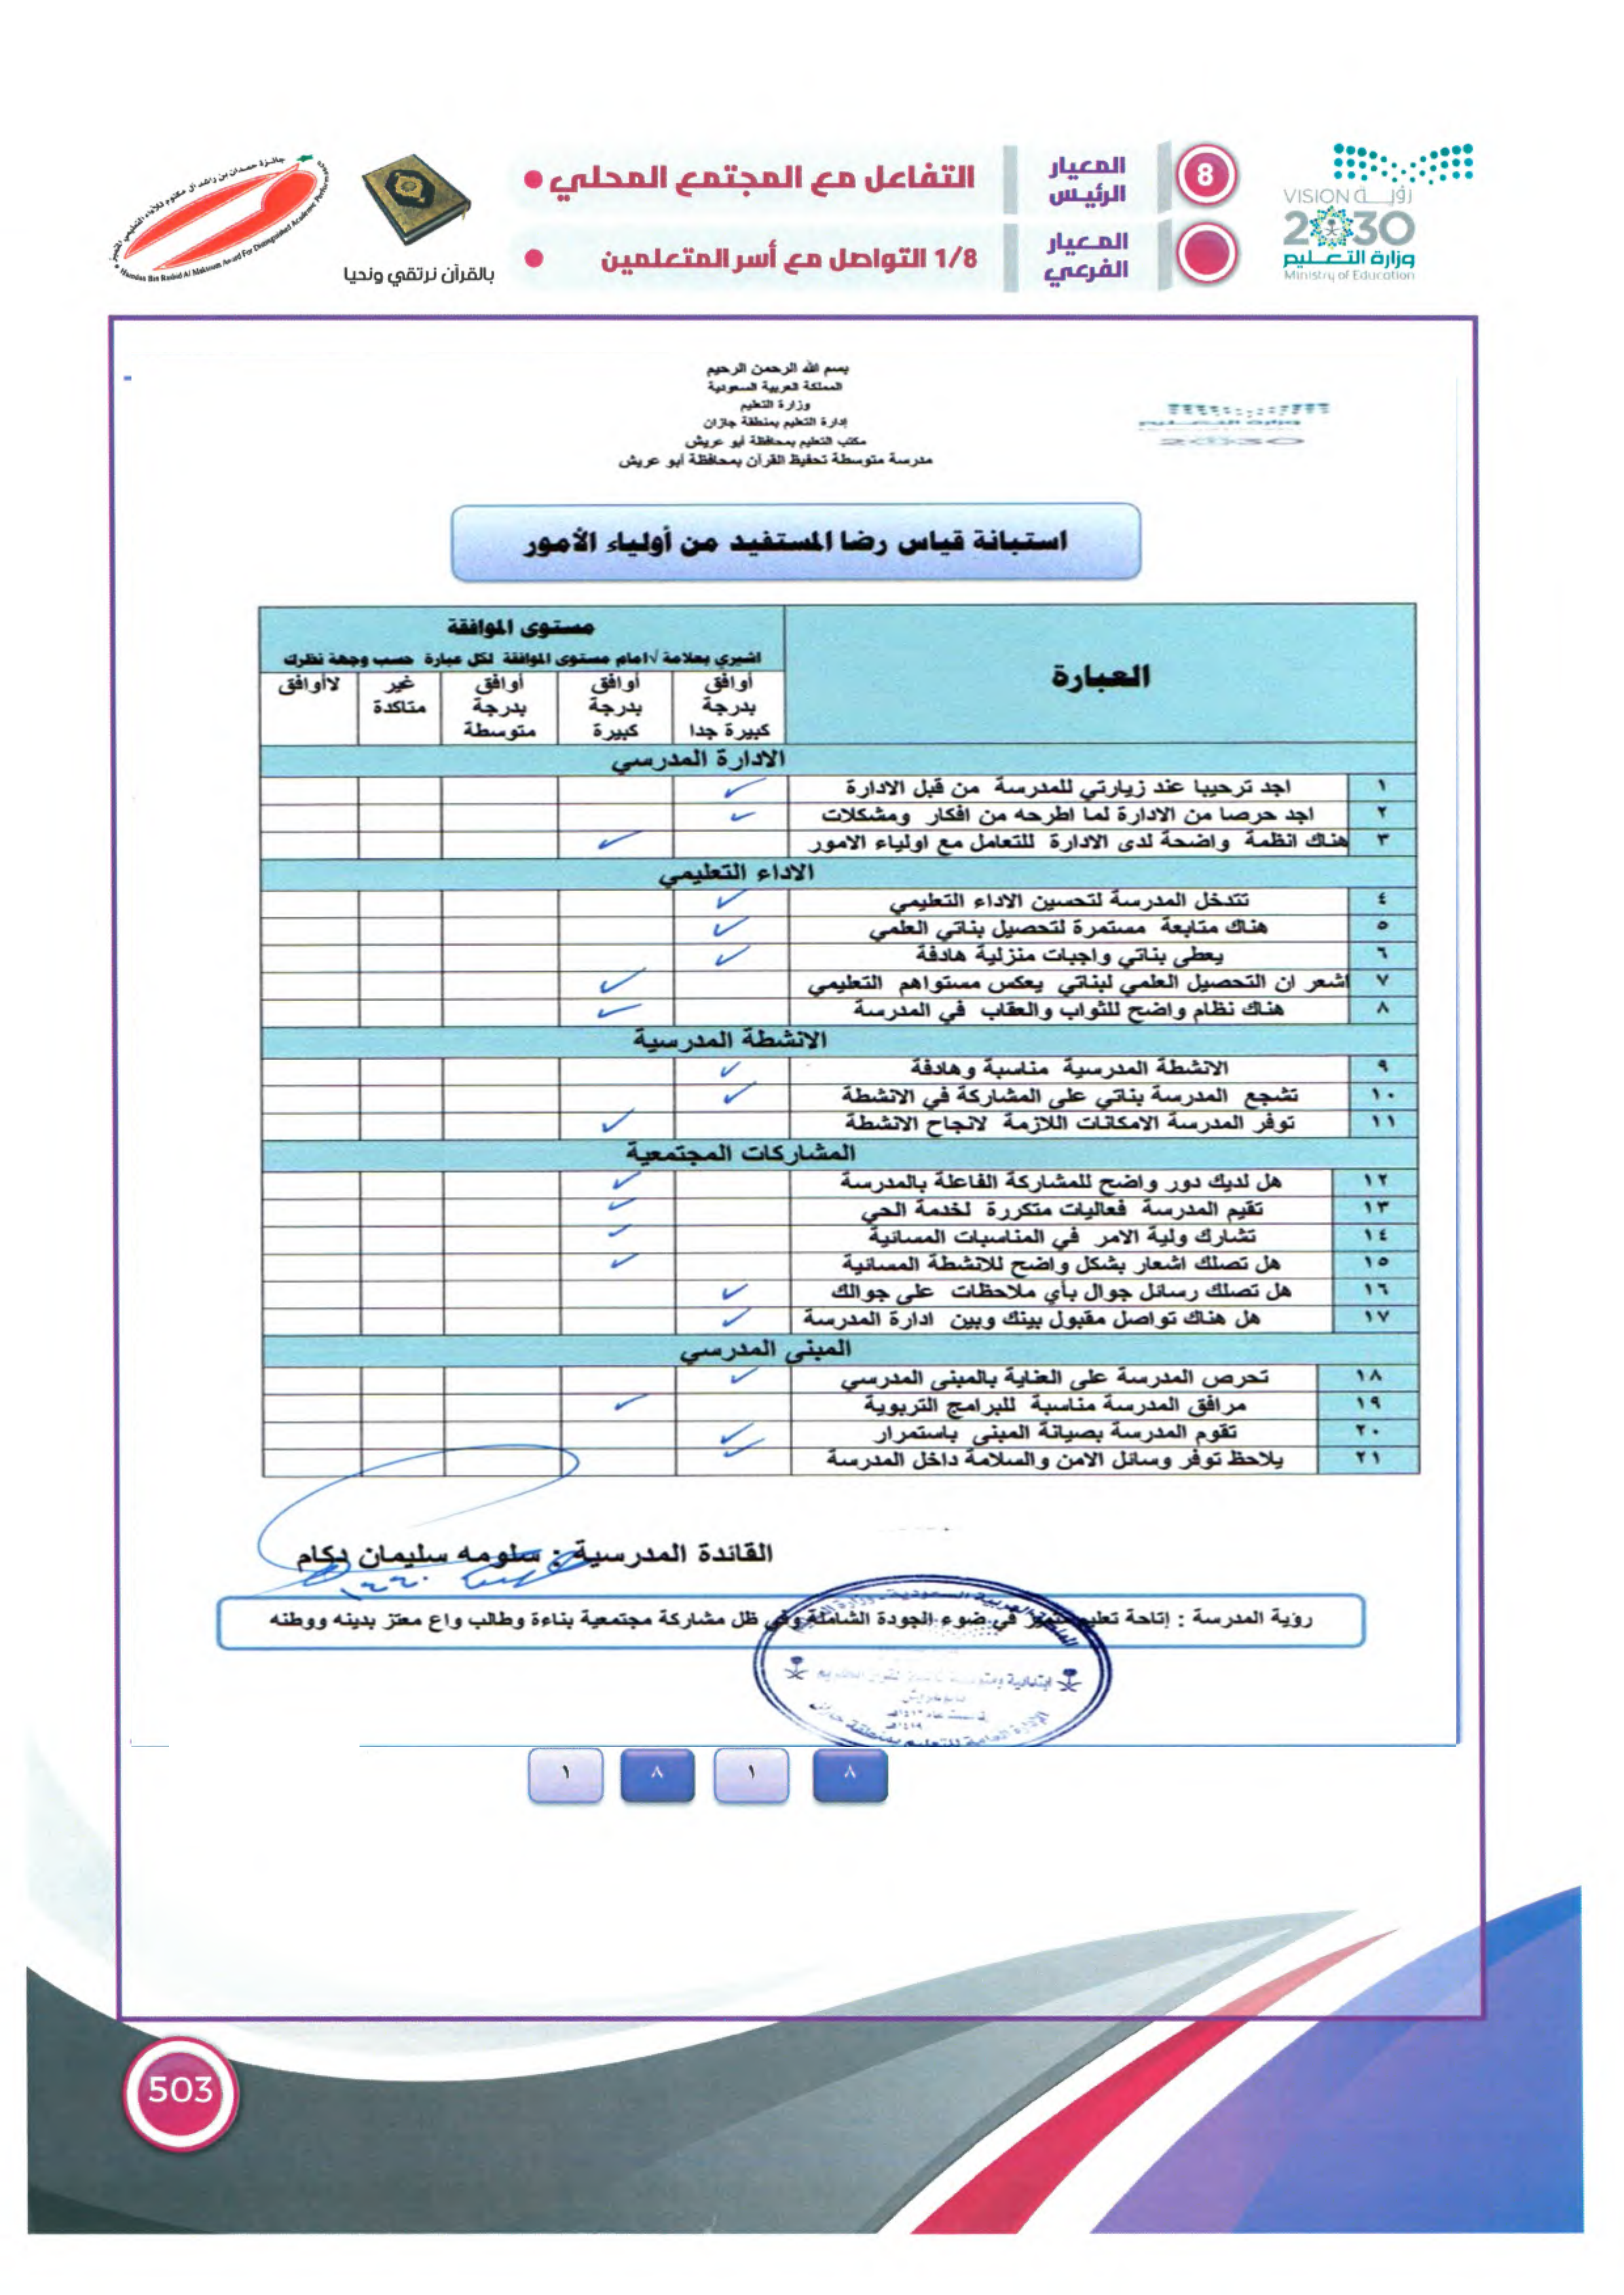 رؤية VISION
2030
وزارة التعليم
Ministry of Education
8
المعيار الرئيس
التفاعل مع المجتمع المحلي
المعيار الفرعي
1/8 التواصل مع أسر المتعلمين
بالقرآن نرتقي ونحيا
جائزة حمدان بن راشد آل مكتوم للأداء التعليمي المتميز
Hamdan Bin Rashid Al Maktoum Award For Distinguished Academic Performance
بسم الله الرحمن الرحيم
المملكة العربية السعودية
وزارة التعليم
إدارة التعليم بمنطقة جازان
مكتب التعليم بمحافظة أبو عريش
مدرسة متوسطة تحفيظ القرآن بمحافظة أبو عريش
استبانة قياس رضا المستفيد من أولياء الأمور
العبارة
مستوى الموافقة
اشيري بعلامة √ امام مستوى الموافقة لكل عبارة حسب وجهة نظرك
أوافق بدرجة كبيرة جدا
أوافق بدرجة كبيرة
أوافق بدرجة متوسطة
غير متاكدة
لاأوافق
الادارة المدرسي
١ اجد ترحيبا عند زيارتي للمدرسة من قبل الادارة ✓
٢ اجد حرصا من الادارة لما اطرحه من افكار ومشكلات ✓
٣ هناك انظمة واضحة لدى الادارة للتعامل مع اولياء الامور ✓
الاداء التعليمي
٤ تتدخل المدرسة لتحسين الاداء التعليمي ✓
٥ هناك متابعة مستمرة لتحصيل بناتي العلمي ✓
٦ يعطى بناتي واجبات منزلية هادفة ✓
٧ اشعر ان التحصيل العلمي لبناتي يعكس مستواهم التعليمي ✓
٨ هناك نظام واضح للثواب والعقاب في المدرسة ✓
الانشطة المدرسية
٩ الانشطة المدرسية مناسبة وهادفة ✓
١٠ تشجع المدرسة بناتي على المشاركة في الانشطة ✓
١١ توفر المدرسة الامكانات اللازمة لانجاح الانشطة ✓
المشاركات المجتمعية
١٢ هل لديك دور واضح للمشاركة الفاعلة بالمدرسة ✓
١٣ تقيم المدرسة فعاليات متكررة لخدمة الحي ✓
١٤ تشارك ولية الامر في المناسبات المسائية ✓
١٥ هل تصلك اشعار بشكل واضح للانشطة المسائية ✓
١٦ هل تصلك رسائل جوال بأي ملاحظات على جوالك ✓
١٧ هل هناك تواصل مقبول بينك وبين ادارة المدرسة ✓
المبنى المدرسي
١٨ تحرص المدرسة على العناية بالمبنى المدرسي ✓
١٩ مرافق المدرسة مناسبة للبرامج التربوية ✓
٢٠ تقوم المدرسة بصيانة المبنى باستمرار ✓
٢١ يلاحظ توفر وسائل الامن والسلامة داخل المدرسة ✓
القائدة المدرسية : سلومه سليمان دكام
رؤية المدرسة : إتاحة تعليم متميز في ضوء الجودة الشاملة وفي ظل مشاركة مجتمعية بناءة وطالب واع معتز بدينه ووطنه
٨ ١ ٨ ١
503